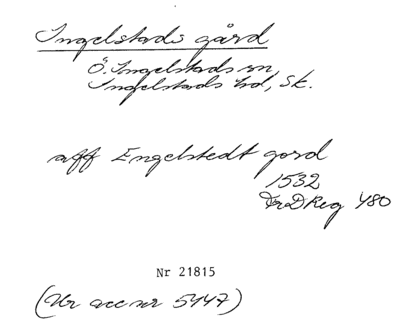 Ingelstads gård
Ö. Ingelstads sn,
Ingelstads hd, Sk.
aff Engelstedt gord
1532
FrDReg 480
Nr 21815
(Ur acc nr 5447)